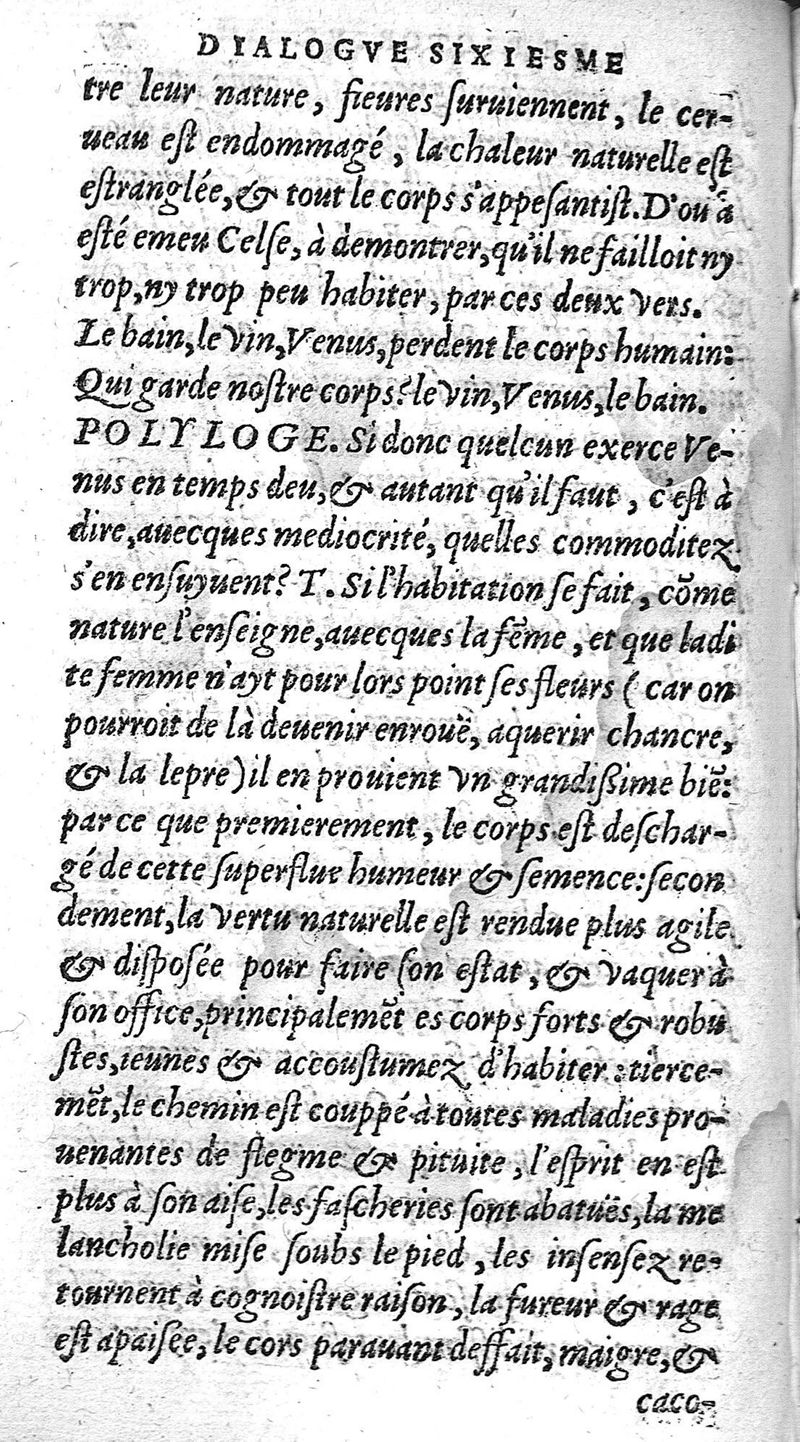 DIALOGVE SIXIESME
tre leur nature, fieures ſuruiennent, le cer-
ueau eſt endommagé, la chaleur naturelle eſt
eſtranglée, & tout le corps s'appeſantiſt. D'ou a
eſté emeu Celſe, à demontrer, qu'il ne failloit ny
trop, ny trop peu habiter, par ces deux vers.
Le bain, le vin, Venus, perdent le corps humain:
Qui garde noſtre corps? le vin, Venus, le bain.
POLYLOGE. Si donc quelcun exerce Ve-
nus en temps deu, & autant qu'il faut, c'eſt à
dire, auecques mediocrité, quelles commoditez
s'en enſuyuent? T. Si l'habitation ſe fait, cõme
nature l'enſeigne, auecques la fẽme, et que ladi
te femme n'ayt pour lors point ſes fleurs (car on
pourroit de là deuenir enroüé, aquerir chancre,
& la lepre) il en prouient vn grandiſſime biẽ:
par ce que premierement, le corps eſt deſchar-
gé de cette ſuperflue humeur & ſemence: ſecon
dement, la vertu naturelle eſt rendue plus agile
& diſpoſée pour faire ſon eſtat, & vaquer à
ſon office, principalemẽt es corps forts & robu
ſtes, ieunes & accouſtumez d'habiter: tierce-
mẽt, le chemin eſt couppé à toutes maladies pro-
uenantes de flegme & pituite, l'eſprit en eſt
plus à ſon aiſe, les faſcheries ſont abatuës, la me
lancholie miſe ſoubs le pied, les inſenſez re-
tournent à cognoiſtre raiſon, la fureur & rage
eſt apaiſée, le cors parauant deffait, maigre, &
caco-